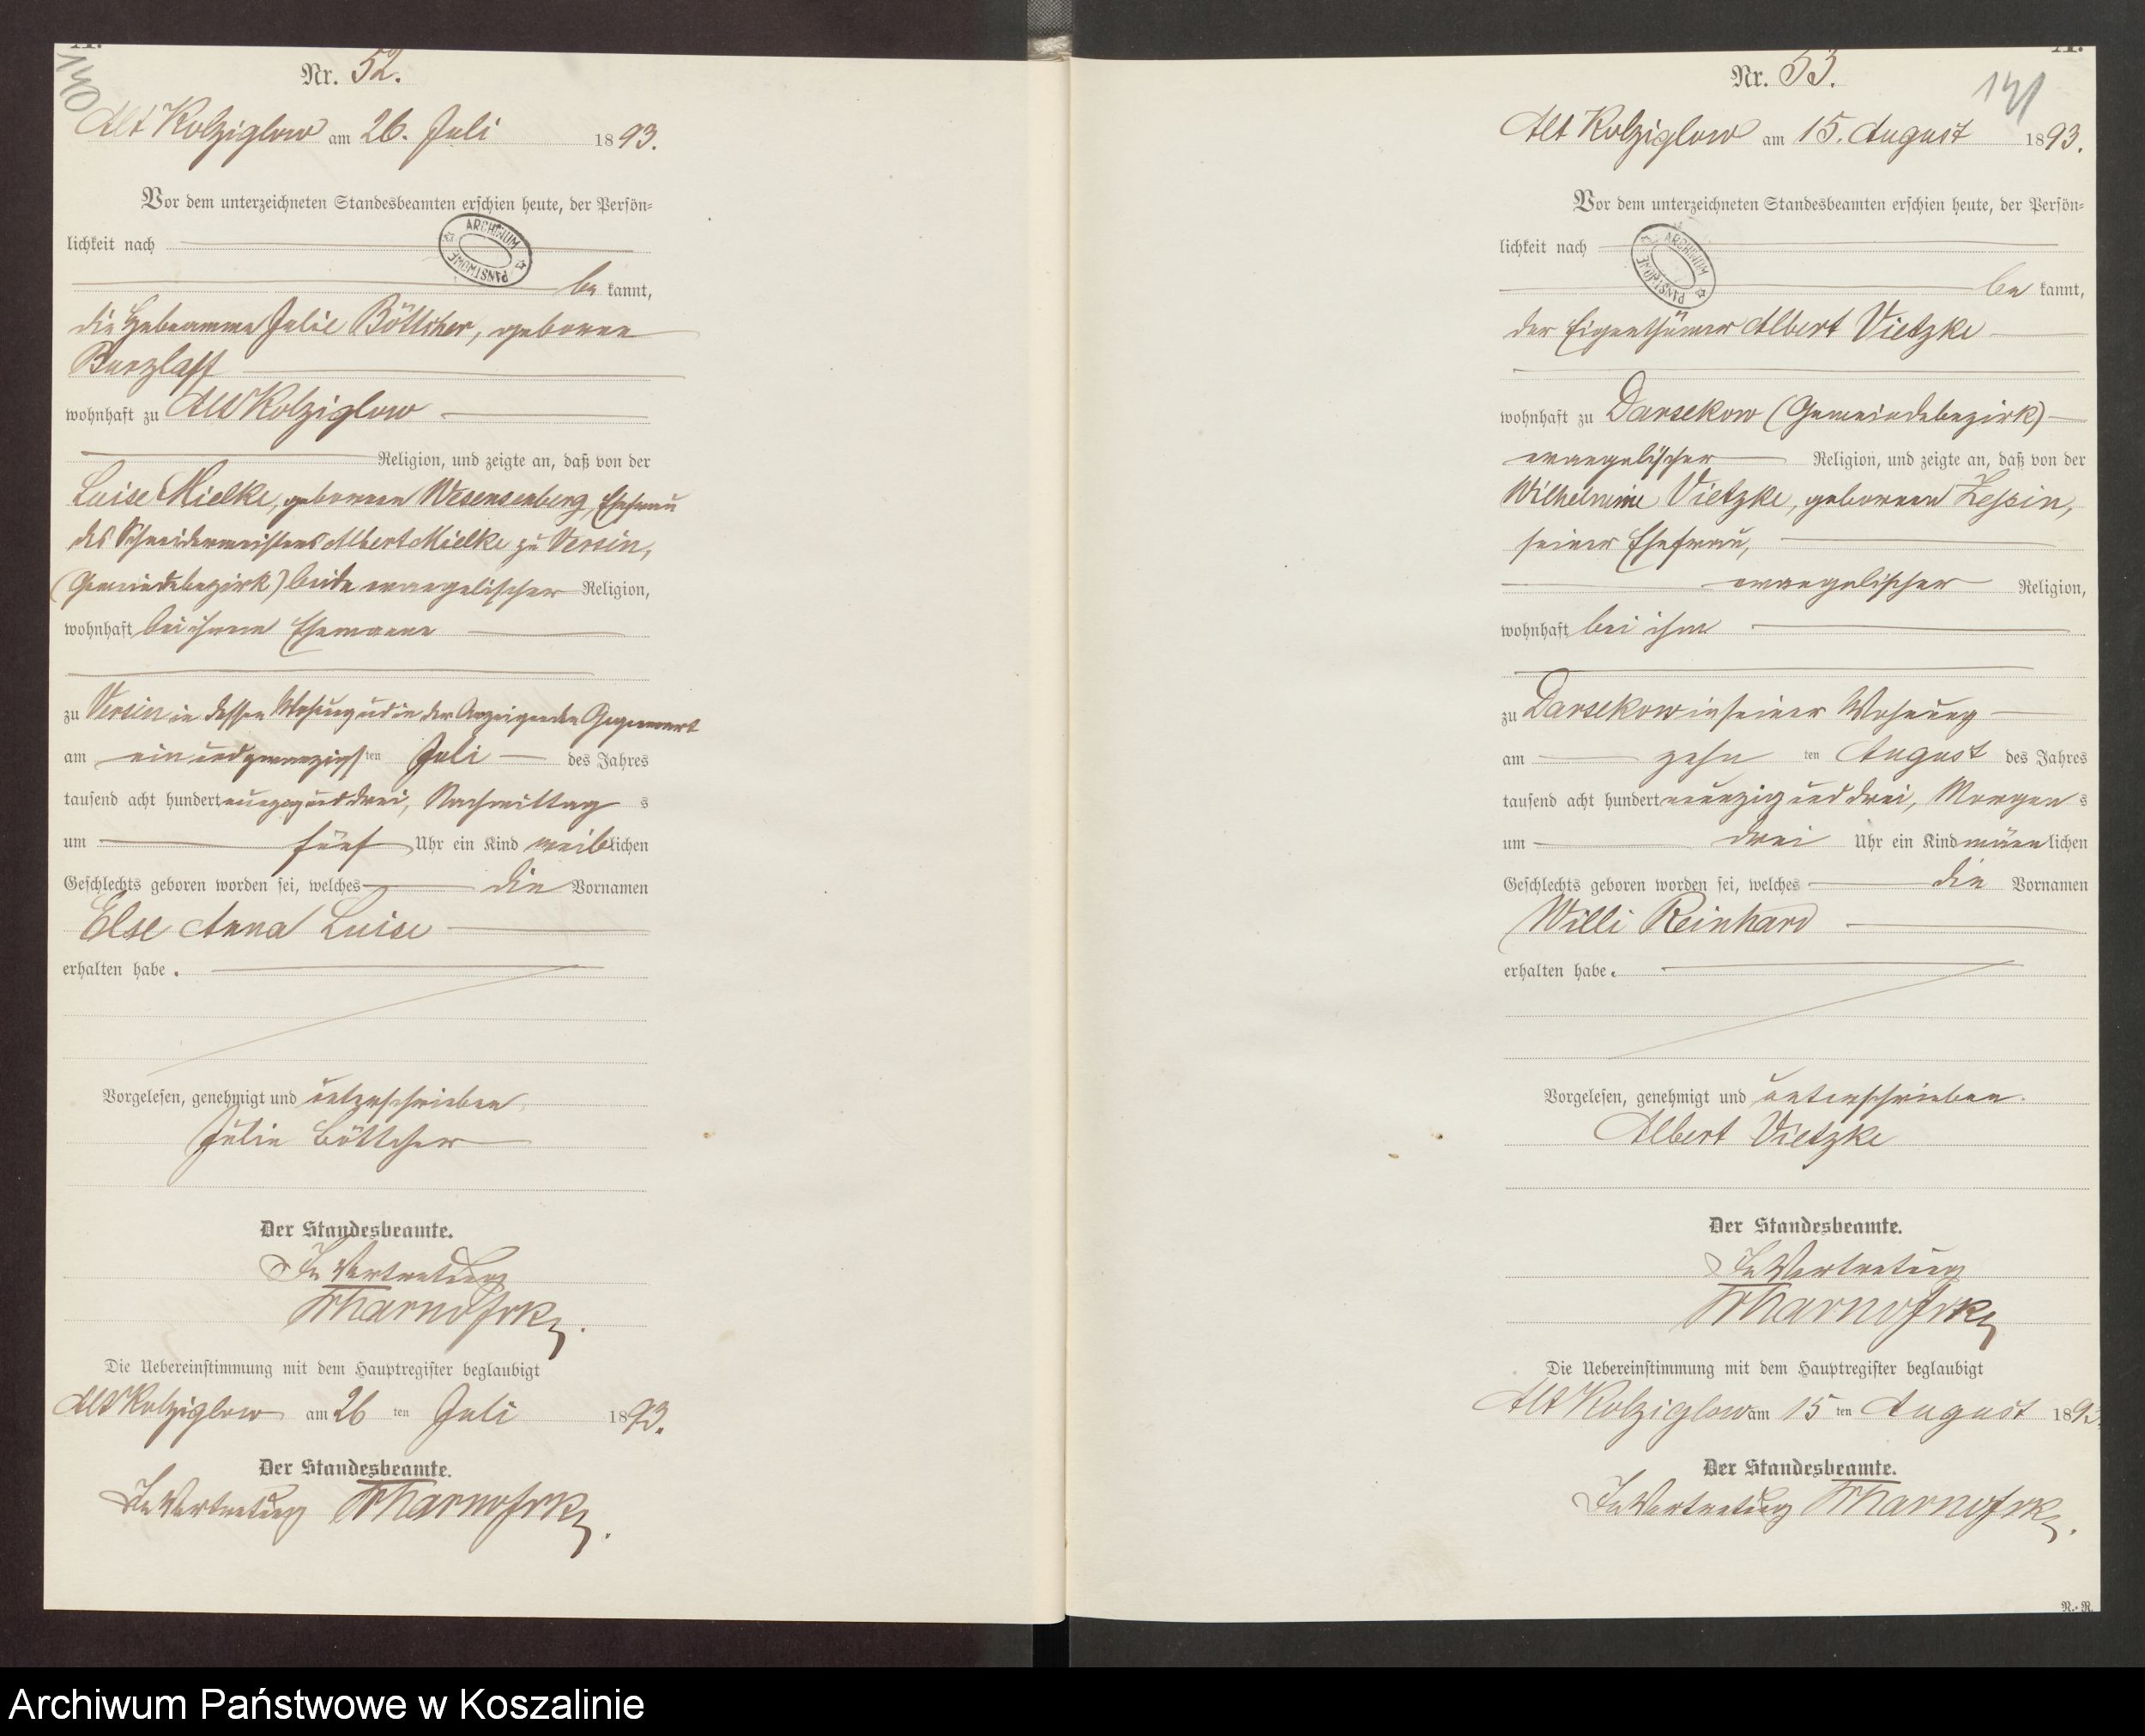 140
Nr. 52.
Alt Kolziglow am 26. Juli 1893.
Vor dem unterzeichneten Standesbeamten erschien heute, der Persön=
lichkeit nach
ARCHIWUM PAŃSTWOWE
be kannt,
die Hebeamme Julie Böttcher, geborene
Burzlaff
wohnhaft zu Alt Kolziglow
Religion, und zeigte an, daß von der
Luise Mielke, geborenen Wesensenberg, Ehefrau
des Schneidermeisters Albert Mielke zu Versin,
(Gemeindebezirk) beide evangelischer Religion,
wohnhaft bei ihrem Ehemanne
zu Versin in dessen Wohnung und in der Anzeigenden Gegenwart
am ein und zwanzigsten Juli des Jahres
tausend acht hundert neunzig und drei, Nachmittags
um fünf Uhr ein Kind weiblichen
Geschlechts geboren worden sei, welches die Vornamen
Else Anna Luise
erhalten habe.
Vorgelesen, genehmigt und unterschrieben
Julie Böttcher
Der Standesbeamte.
In Vertretung
Die Uebereinstimmung mit dem Hauptregister beglaubigt
Alt Kolziglow am 26ten Juli 1893.
Der Standesbeamte.
In Vertretung
141
Nr. 53.
Alt Kolziglow am 15. August 1893.
Vor dem unterzeichneten Standesbeamten erschien heute, der Persön=
lichkeit nach
ARCHIWUM PAŃSTWOWE
be kannt,
der Eigenthümer Albert Vietzke
wohnhaft zu Darsekow (Gemeindebezirk)
evangelischer Religion, und zeigte an, daß von der
Wilhelmine Vietzke, geborenen Zessin,
seiner Ehefrau,
evangelischer Religion,
wohnhaft bei ihm
zu Darsekow in seiner Wohnung
am zehnten August des Jahres
tausend acht hundert neunzig und drei, Morgens
um drei Uhr ein Kind männlichen
Geschlechts geboren worden sei, welches die Vornamen
Willi Reinhard
erhalten habe.
Vorgelesen, genehmigt und unterschrieben.
Albert Vietzke
Der Standesbeamte.
In Vertretung
Die Uebereinstimmung mit dem Hauptregister beglaubigt
Alt Kolziglow am 15ten August 1893.
Der Standesbeamte.
In Vertretung
N.-R.
Archiwum Państwowe w Koszalinie